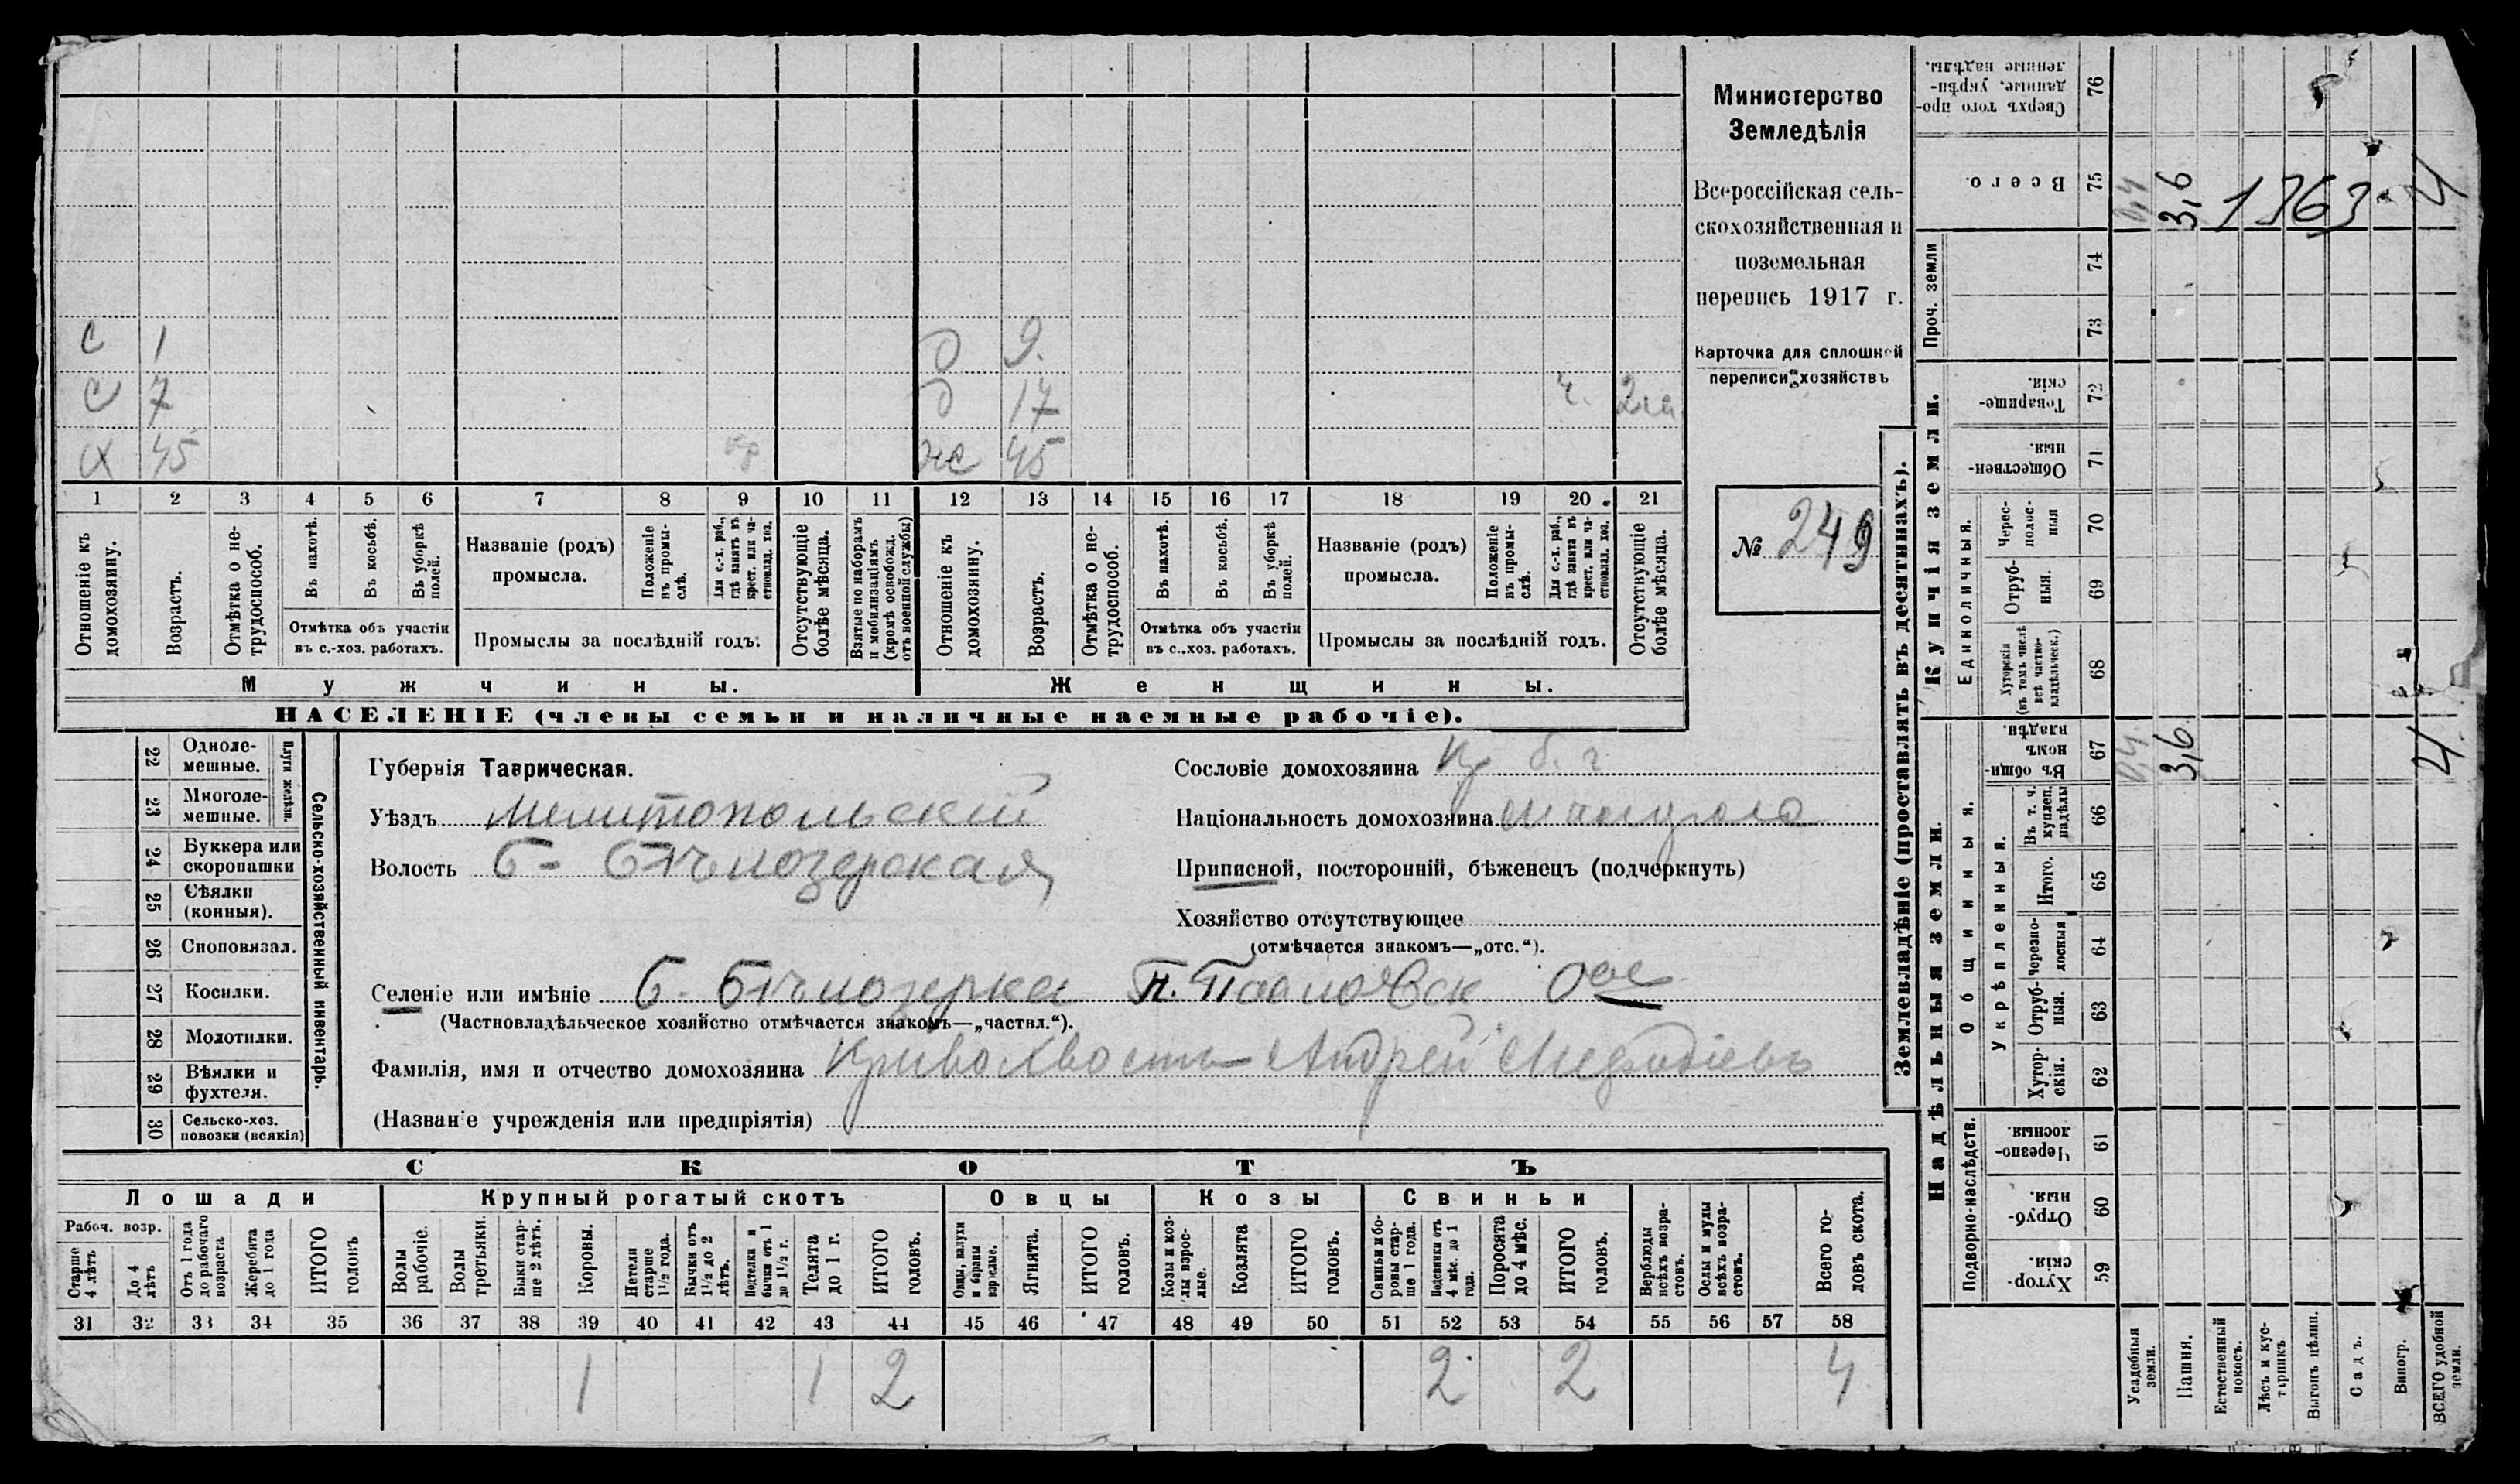 С 1 д 9.
С 7 д 17 ч.
Х 45 ж 45
1 2 3 4 5 6 7 8 9 10 11 12 13 14 15 16 17 18 19 20 21
Отношеніе къ домохозяину.
Возрастъ.
Отмѣтка о не-трудоспособ.
Въ пахотѣ.
Въ косьбѣ.
Въ уборкѣ полей.
Отмѣтка объ участіи
въ с.-хоз. работахъ.
Названіе (родъ)
промысла.
Положеніе въ промы-слѣ.
Для с.-х. раб., гдѣ занятъ въ крест. или ча-стновлад. хоз.
Промыслы за послѣдній годъ.
Отсутствующіе болѣе мѣсяца.
Взятые по наборамъ и мобилизаціямъ (кромѣ освобожд. отъ военной службы)
Отношеніе къ домохозяину.
Возрастъ.
Отмѣтка о не-трудоспособ.
Въ пахотѣ.
Въ косьбѣ.
Въ уборкѣ полей.
Отмѣтка объ участіи
въ с..хоз. работахъ.
Названіе (родъ)
промысла.
Положеніе въ промы-слѣ.
Для с.-х. раб., гдѣ занята въ крест. или ча-стновлад. хоз.
Промыслы за послѣдній годъ.
Отсутствующіе болѣе мѣсяца.
Мужчины.
Женщины.
НАСЕЛЕНІЕ (члены семьи и наличные наемные рабочіе).
Министерство
Земледѣлія
Всероссійская сель-
скохозяйственная и
поземельная
перепись 1917 г.
Карточка для сплошной
переписи хозяйствъ
№ 249
22 Одноле-мешные.
23 Многоле-мешные.
Плуги желѣзн.
24 Буккера или скоропашки
25 Сѣялки (конныя).
26 Сноповязал.
27 Косилки.
28 Молотилки.
29 Вѣялки и фухтеля.
30 Сельско-хоз. повозки (всякія)
Сельско-хозяйственный инвентарь.
Губернія Таврическая.
Уѣздъ Мелитопольскій
Волость Б-Бѣлозерская
Селеніе или имѣніе Б. Бѣлозерка П. Павловск. О-ое
(Частновладѣльческое хозяйство отмѣчается знакомъ—„частвл.“).
Фамилія, имя и отчество домохозяина Кривохвостъ Андрей Мефодіевъ
(Названіе учрежденія или предпріятія)
Сословіе домохозяина Кр
Національность домохозяина
Приписной, посторонній, бѣженецъ (подчеркнуть)
Хозяйство отсутствующее
(отмѣчается знакомъ—„отс.“).
СКОТЪ
Лошади Крупный рогатый скотъ Овцы Козы Свиньи
Рабоч. возр.
Старше 4 лѣтъ
До 4 лѣтъ
Отъ 1 года до рабочаго возраста
Жеребята до 1 года
ИТОГО головъ
Волы рабочіе.
Волы третьяки.
Быки стар-ше 2 лѣтъ.
Коровы.
Нетели старше 1½ года.
Бычки отъ 1½ до 2 лѣтъ.
Подтелки и бычки отъ 1 до 1½ г.
Телята до 1 г.
ИТОГО головъ.
Овцы, валухи и бараны взрослые.
Ягнята.
ИТОГО головъ.
Козы и коз-лы взрос-лые.
Козлята
ИТОГО головъ.
Свиньи и бо-ровы стар-ше 1 года.
Подсвинки отъ 4 мѣс. до 1 года.
Поросята до 4 мѣс.
ИТОГО головъ.
Верблюды всѣхъ возра-стовъ.
Ослы и мулы всѣхъ возра-стовъ.
Всего го-ловъ скота.
31 32 33 34 35 36 37 38 39 40 41 42 43 44 45 46 47 48 49 50 51 52 53 54 55 56 57 58
1 1 2 2 2 4
Землевладѣніе (проставлять въ десятинахъ).
Надѣльныя земли.
Купчія земли.
Проч. земли
Подворно-наслѣдств.
Общинныя.
Укрѣпленныя.
Единоличныя.
Сверхъ того про-данные, укрѣп-ленные надѣлы. 76
Всего. 75 0,4 3,6 1363 4
74
73
Товарище-скія. 72
Обществен-ныя. 71
Черес-полос-ныя 70
Отруб-ныя. 69
Хуторскія (въ томъ числѣ всѣ частно-владѣльческ.) 68
Въ общи-номъ владѣн. 67 0,4 3,6 4
Въ т. ч. куплен. надѣлы 66
Итого. 65
Черезпо-лосныя 64
Отруб-ныя. 63
Хутор-скія. 62
Черезпо-лосныя. 61
Отруб-ныя. 60
Хутор-скія. 59
Усадебныя земли.
Пашня.
Естественный покосъ.
Лѣсъ и кус-тарникъ
Выгонъ цѣлин.
Садъ.
Виногр.
ВСЕГО удобной земли.